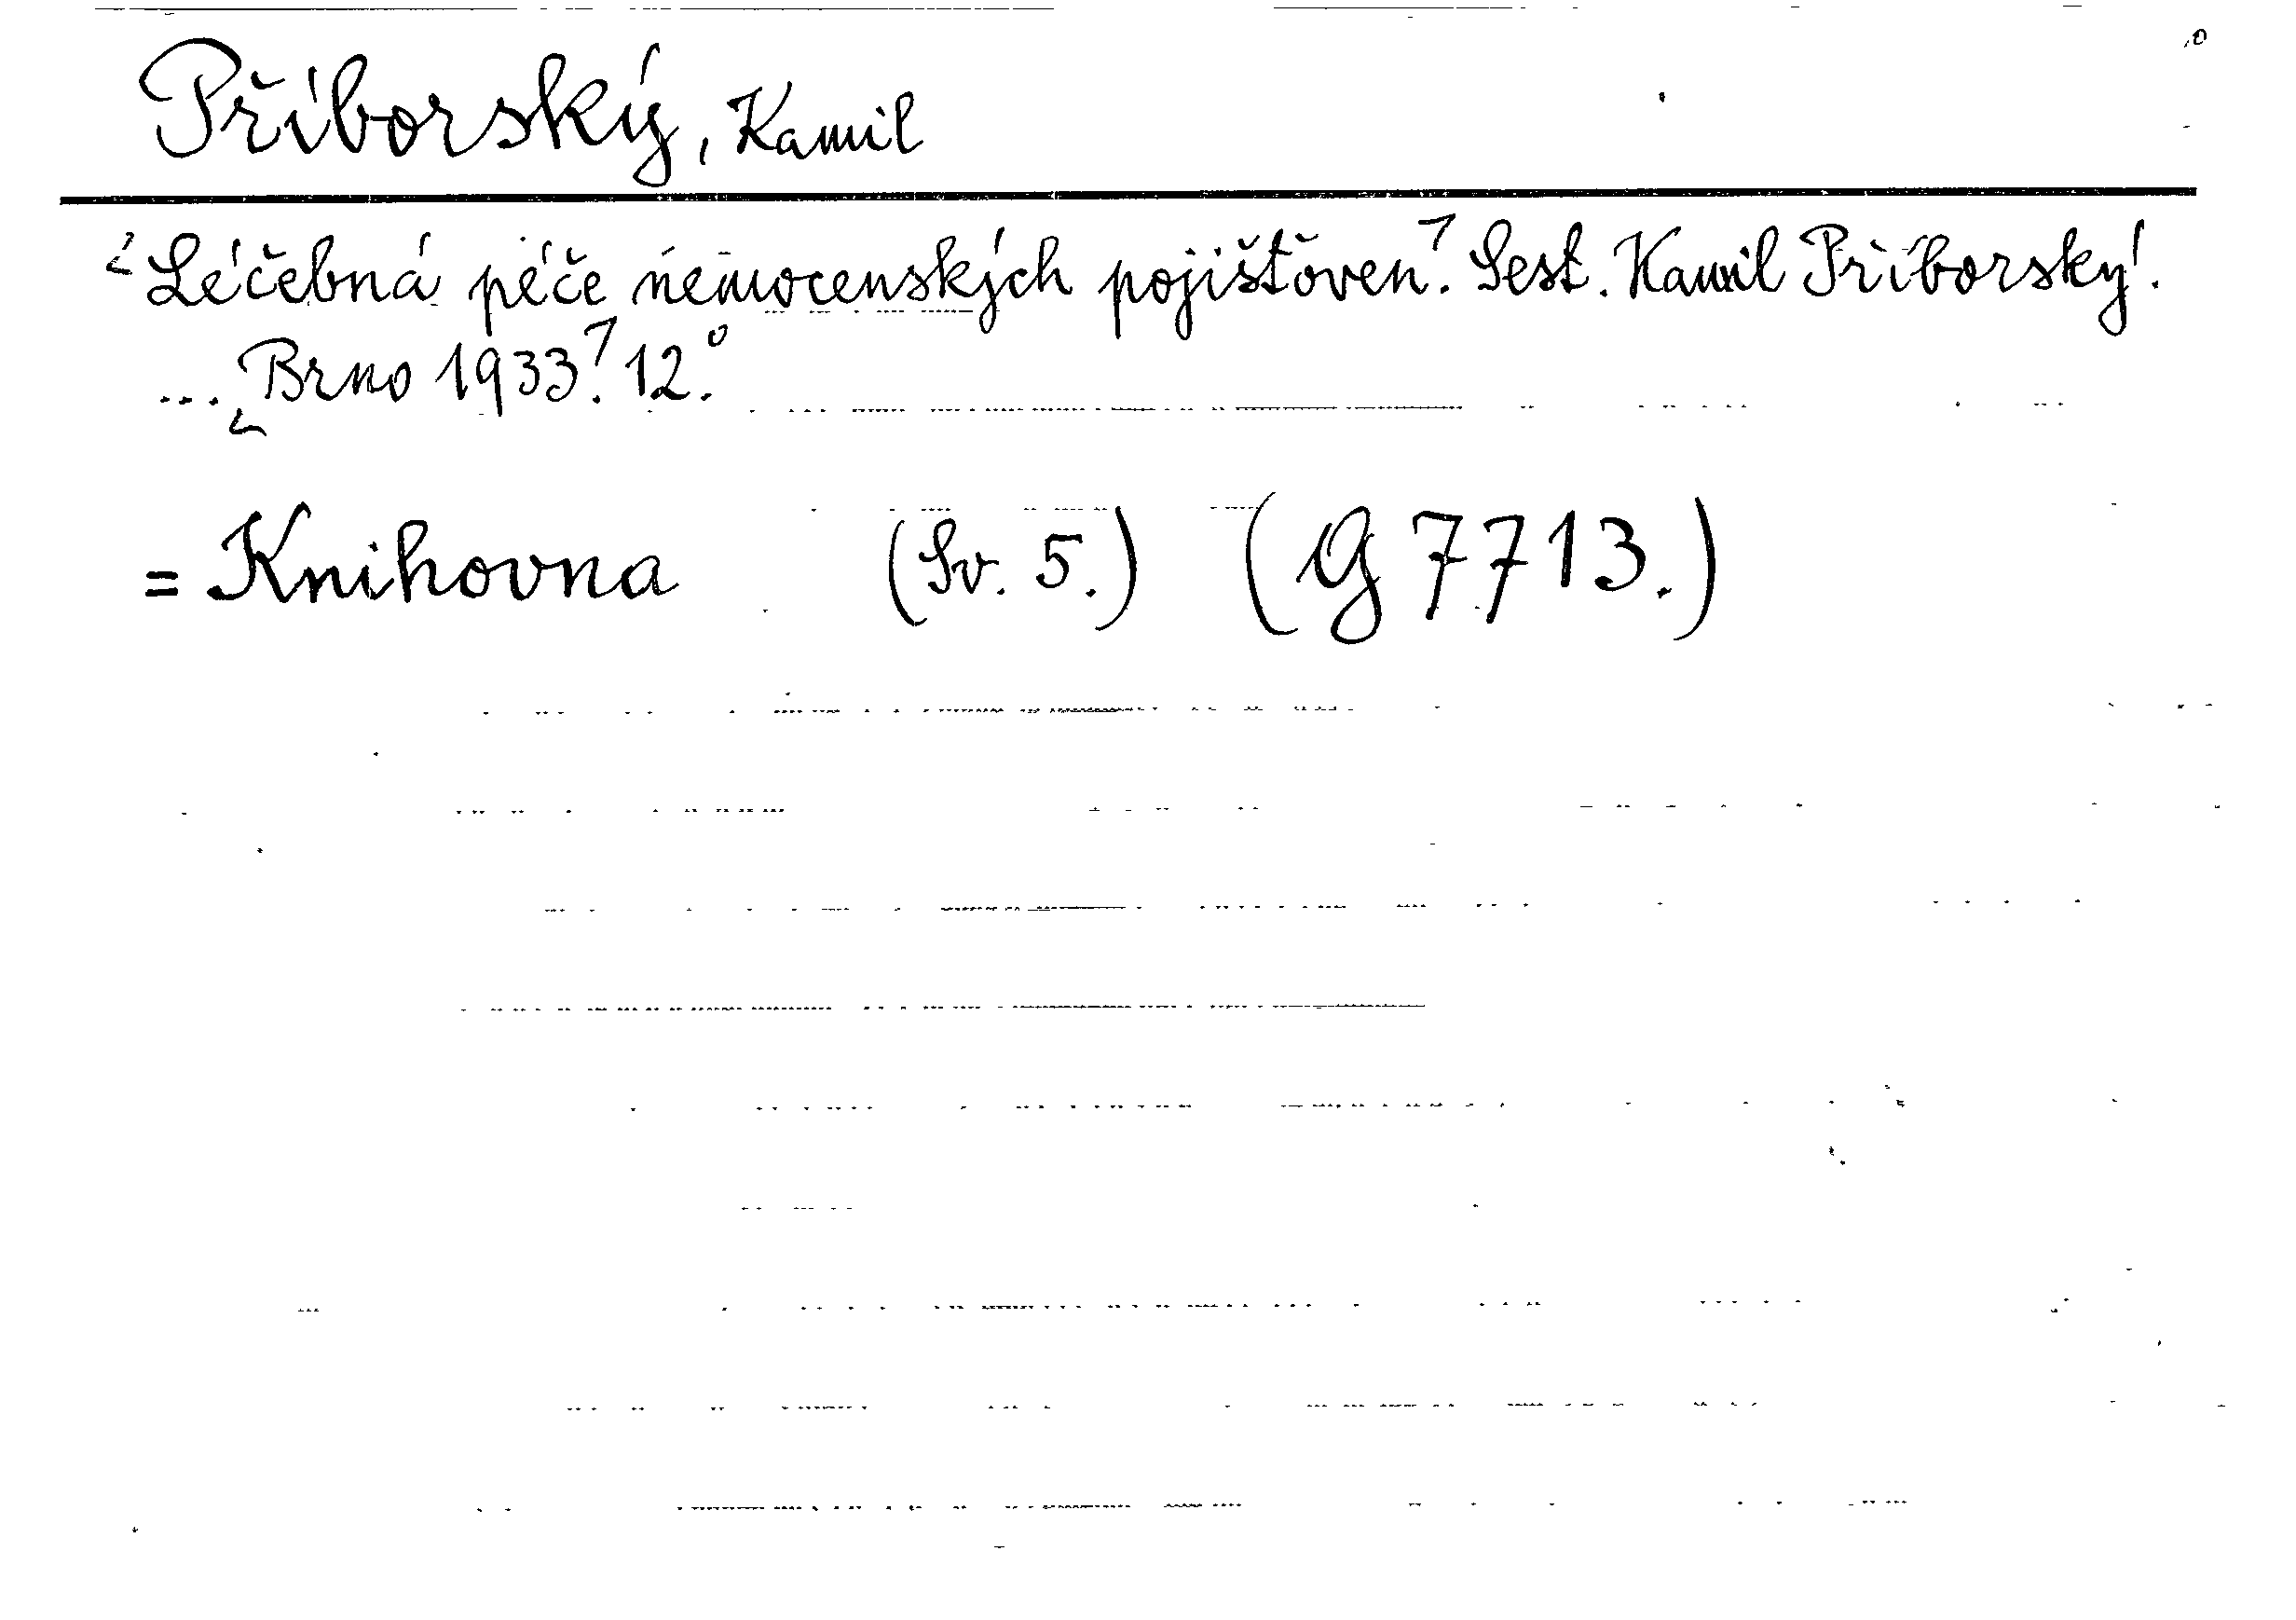 Příborský, Kamil
Léčebná péče nemocenských pojišťoven. Sest. Kamil Příborský.
... Brno 1933. 12.°
= Knihovna (Sv. 5.) (G 7713.)